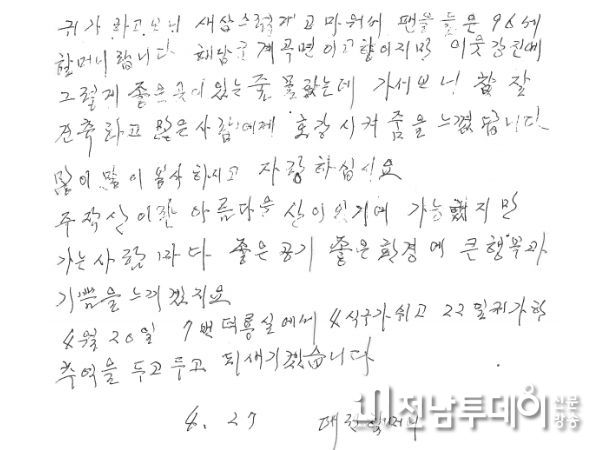 귀가 하고보니 새삼스럽게 고마워서 팬을들은 96세
할머니랍니다 해남군 계곡면이 고향이지만 이웃강진에
그렇게 좋은곳이 있는줄 몰랐는데 가서보니 참 잘
건축하고 많은사람에게 호강시켜줌을 느꼈답니다
많이 많이 봉사하시고 자랑하십시요
주작산이란 아름다운 산이있기에 가능했지만
가는사람마다 좋은공기 좋은환경에 큰행복과
기쁨을 느끼겠지요
4월 20일 7번 덕룡실에서 4식구가쉬고 22일귀가한
추억을 두고두고 되새기겠습니다
4. 27 대전할머니
전남투데이 신문 방송